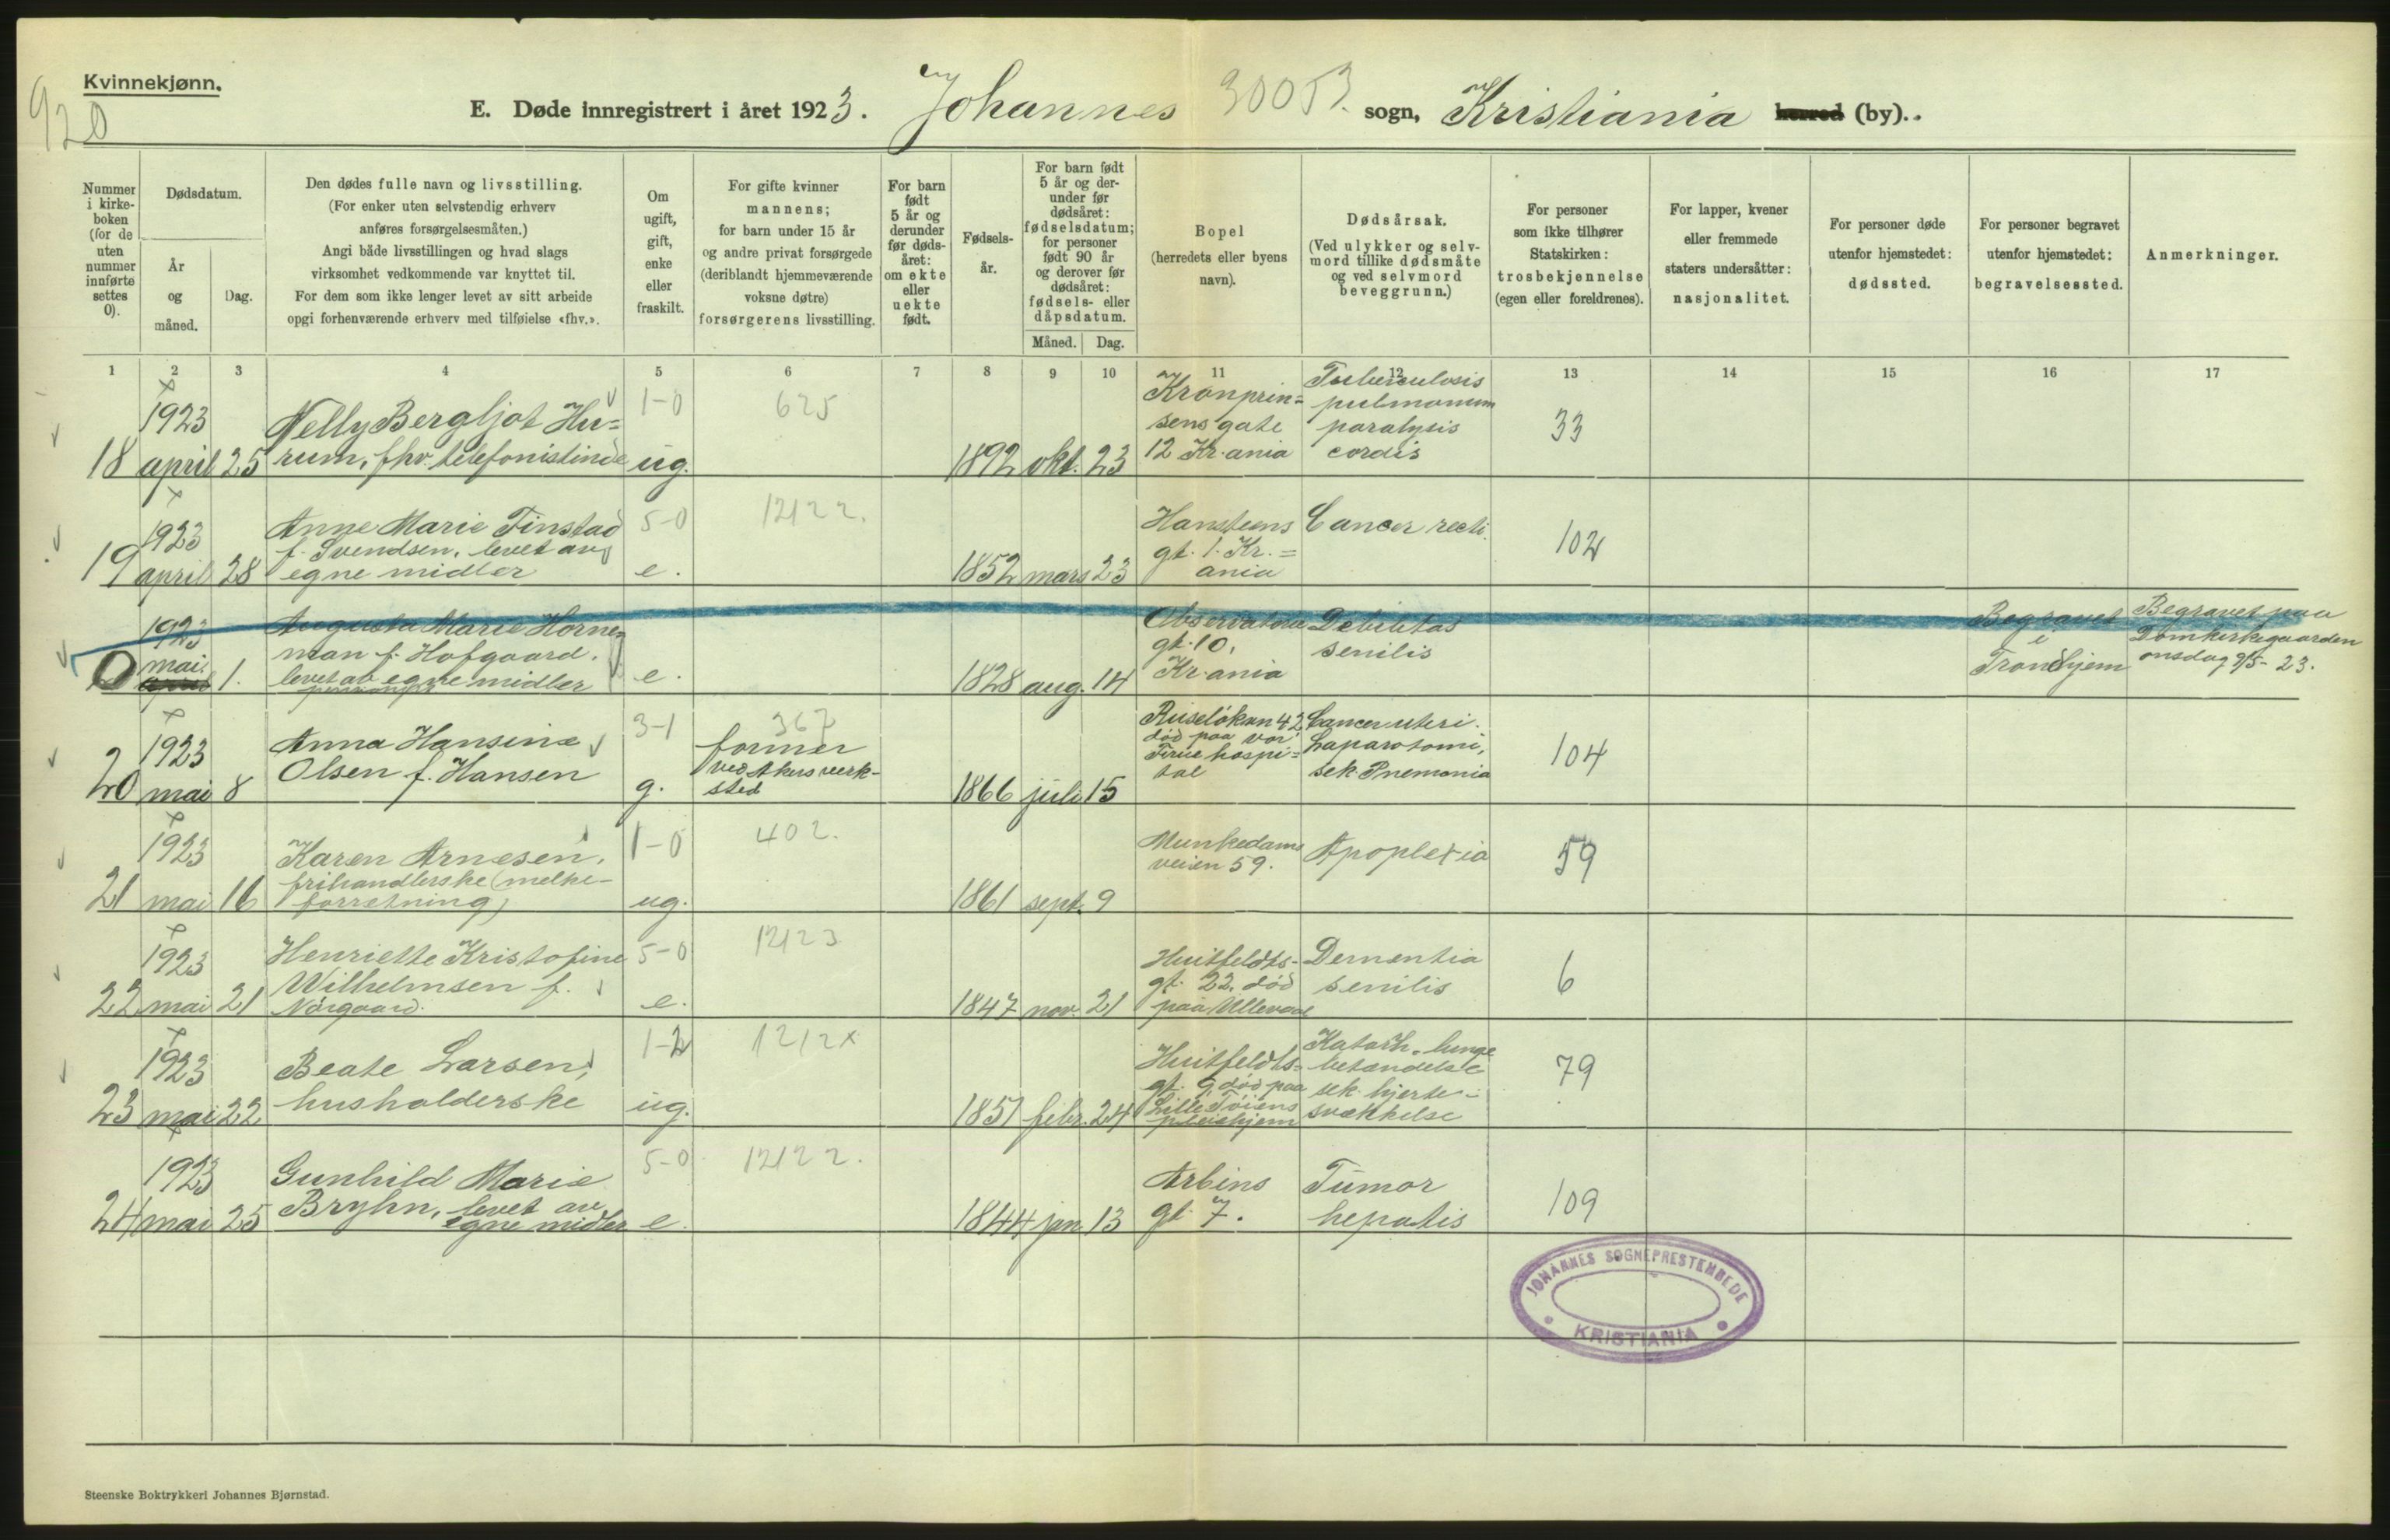 Kvinnekjønn.
920
E. Døde innregistrert i året 1923. Johannes 30053. sogn, Kristiania herred (by)..
Nummer i kirke-boken (for de uten nummer innførte settes 0).
Dødsdatum.
År og måned.
Dag.
Den dødes fulle navn og livsstilling.
(For enker uten selvstendig erhverv
anføres forsørgelsesmåten.)
Angi både livsstillingen og hvad slags
virksomhet vedkommende var knyttet til.
For dem som ikke lenger levet av sitt arbeide
opgi forhenværende erhverv med tilføielse «fhv.».
Om
ugift,
gift,
enke
eller
fraskilt.
For gifte kvinner
mannens;
for barn under 15 år
og andre privat forsørgede
(deriblandt hjemmeværende
voksne døtre)
forsørgerens livsstilling.
For barn
født
5 år og
derunder
før døds-
året:
om ekte
eller
uekte
født.
Fødsels-
år.
For barn født
5 år og der-
under før
dødsåret:
fødselsdatum;
for personer
født 90 år
og derover før
dødsåret:
fødsels- eller
dåpsdatum.
Måned. Dag.
Bopel
(herredets eller byens
navn).
Dødsårsak.
(Ved ulykker og selv-
mord tillike dødsmåte
og ved selvmord
beveggrunn.)
For personer
som ikke tilhører
Statskirken:
trosbekjennelse
(egen eller foreldrenes).
For lapper, kvener
eller fremmede
staters undersåtter:
nasjonalitet.
For personer døde
utenfor hjemstedet:
dødssted.
For personer begravet
utenfor hjemstedet:
begravelsessted.
Anmerkninger.
1 2 3 4 5 6 7 8 9 10 11 12 13 14 15 16 17
18
1923
april 25
Nelly Bergljot Hu=
rum, fhv. telefonistinde
1-0
ug.
625
1892 okt. 23
Kronprin=
sens gate
12 Kr.ania
Tuberculosis
pulmonum
paralysis
cordis
33
19
1923
april 28
Anne Marie Finstad
f. Svendsen, levet av
egne midler
5-0
e.
12122.
1852 mars 23
Hansteens
gt. 1. Kr.=
ania
Cancer recti.
102
0
1923
mai
april 1.
Augusta Marie Horne-
man f. Hofgaard.
levet av egne midler
e.
1828 aug. 14
Observatorie
gt. 10,
Kr.ania
Debilitas
senilis
Begravet
i
Trondhjem
Begravet paa
Domkirkegaarden
onsdag 9/5-23.
20
1923
mai 8
Anna Hansine
Olsen f. Hansen
3-1
g.
367
former
ved Akers verk-
sted
1866 juli 15
Ruseløkvn 42
død paa Vor
Frue hospi=
tal
Cancer uteri.
Laparotomi,
sek. Pnemonia
104
21
1923
mai 16
Karen Arnesen,
frihandlerske (melke-
forretning)
1-0
ug.
402.
1861 sept. 9
Munkedams
veien 59.
Apoplexia
59
22
1923
mai 21
Henriette Kristofine
Wilhelmsen f.
Nørgaard.
5-0
e.
12123
1847 nov. 21
Huitfeldts-
gt. 22. død
paa Ullevaal
Dementia
senilis
6
23
1923
mai 22
Beate Larsen,
husholderske
1-2
ug.
1212x
1857 febr. 24
Huitfeldts=
gt. 9, død paa
Lille Tøiens
pleiehjem
Katarh. lunge
betændelse
sek. hjerte-
svækkelse
79
24
1923
mai 25
Gunhild Marie
Bryhn, levet av
egne midler
5-0
e.
12122.
1844 jan. 13
Arbins
gt. 7.
Tumor
hepatis
109
JOHANNES SOGNEPRESTEMBEDE
KRISTIANIA
Steenske Boktrykkeri Johannes Bjørnstad.